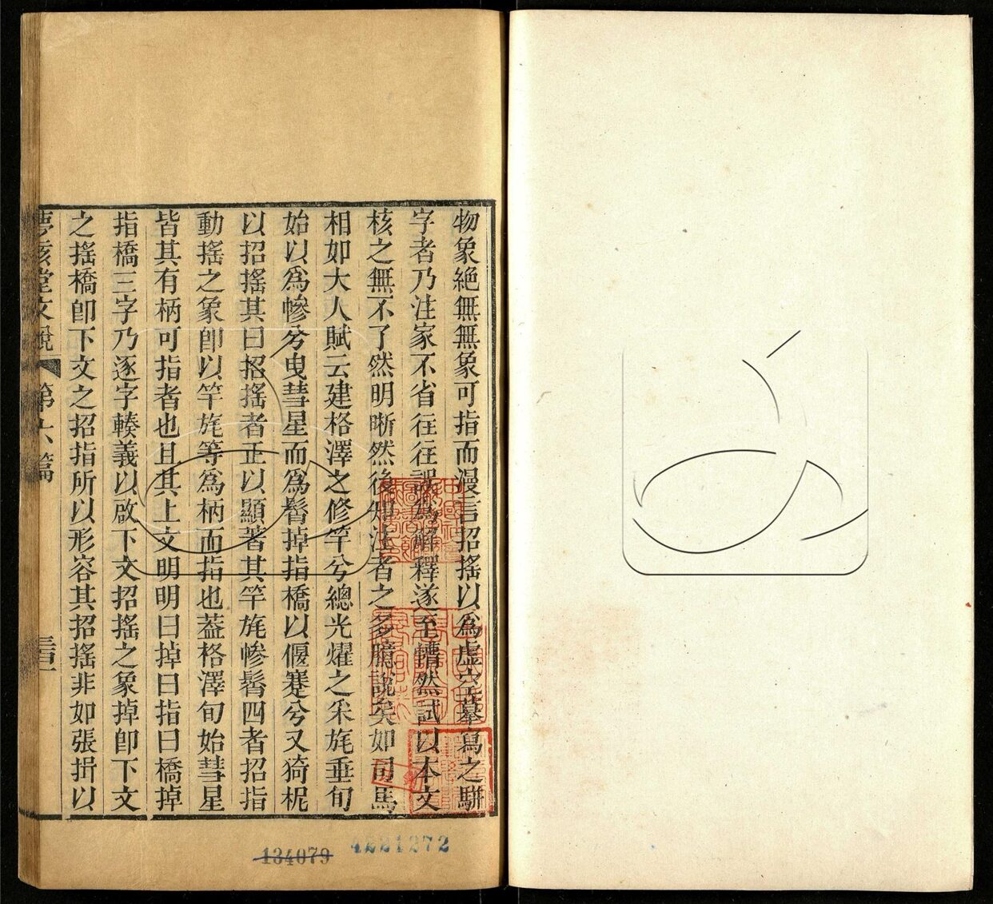 物象絶無無象可指而漫言招搖以爲虛空摹寫之駢
字者乃注家不省往往誤爲解釋遂至轉然試以本文
核之無不了然明晰然後知注者之多臆說矣如司馬
相如大人賦云建格澤之修竿兮總光燿之采旄垂旬
始以爲幓兮曳彗星而爲髾掉指橋以偃蹇兮又猗柅
以招搖其曰招搖者正以顯著其竿旄幓髾四者招指
動搖之象卽以竿旄等爲柄而指也葢格澤旬始彗星
皆其有柄可指者也且其上文明明曰掉曰指曰橋掉
指橋三字乃逐字輳義以啟下文招搖之象掉卽下文
之搖橋卽下文之招指所以形容其招搖非如張揖以
夢陔堂文說 第六篇
134079
4221272